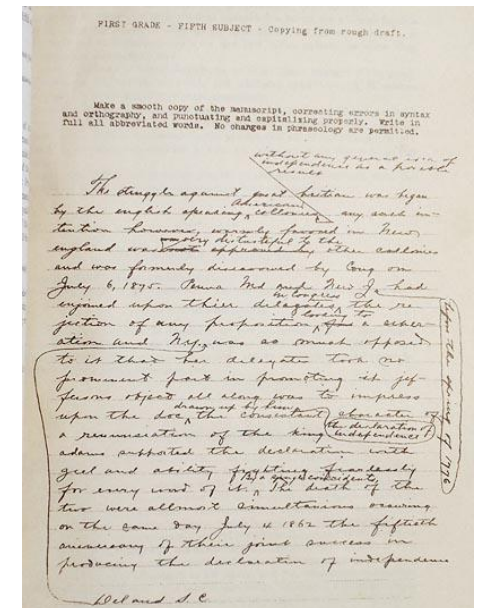 FIRST GRADE - FIFTH SUBJECT - Copying from rough draft.
Make a smooth copy of the manuscript, correcting errors in syntax
and orthography, and punctuating and capitalizing properly. Write in
full all abbreviated words. No changes in phraseology are permitted.
without any general idea of
independence as a possible
result
The struggle against great britian was begun
American
by the english speaking collonies any such in-
tention however, warmly favored in New
was very distasteful to the
england was not approved by other collonies
and was formerly disavowed by Cong on
July 6, 1875. Penna Md and New Ja had
in congress
enjoined upon thier delagates, the re-
looking to
jection of any proposition for a seper-
ation and N.y. was so much opposed
to it that her delegates took no
prominent part in promoting it jef-
fersons object all along was to impress
drawn up by him
upon the doc, the consistant character of
the declaration of
independence
a renunsiation of the king
adams supported the declaration with
zeel and ability fighting fearlessly
By a singular coincidents
for every word of it. The death of the
two were allmost simultanious occuring
on the same day July 4 1862 the fiftieth
aniversary of their joint success in
producing the declaration of independence
the spring of 1776
Deland S.C.